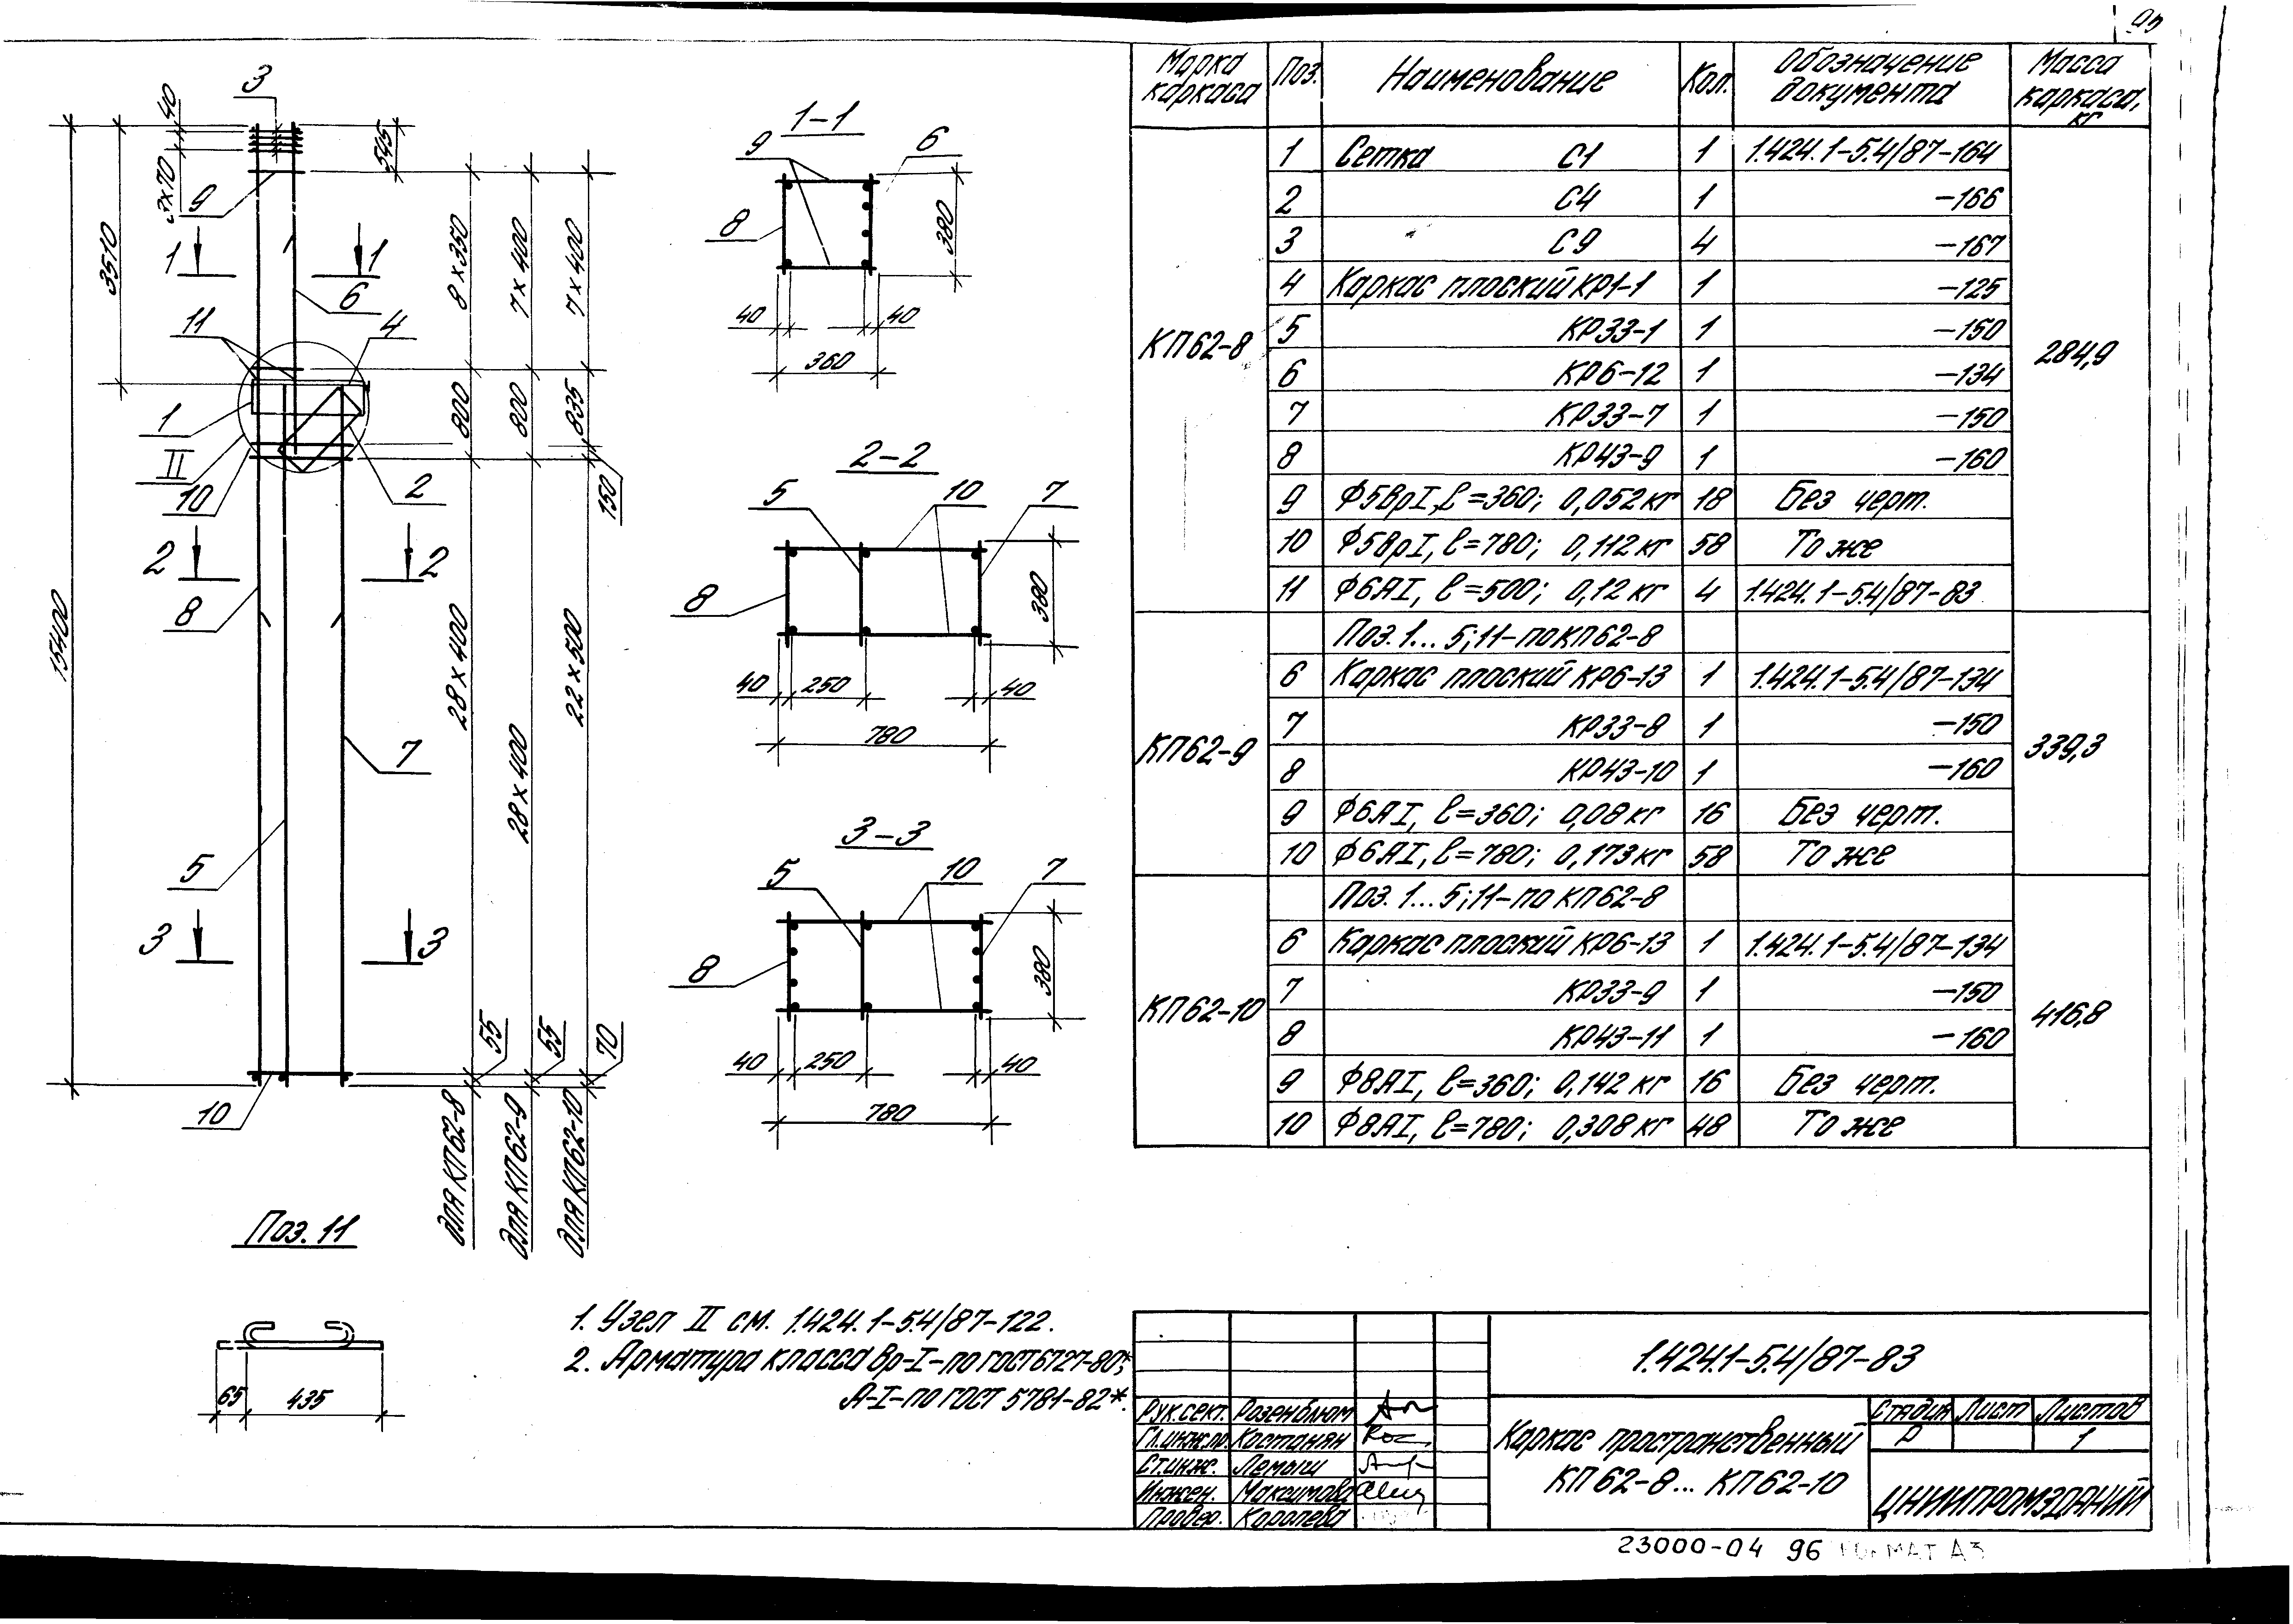 95
Марка каркаса Поз. Наименование Кол. Обозначение документа Масса каркаса, кг
КП62-8 284,9
1 Сетка С1 1 1.424.1-5.4/87-164
2 С4 1 -166
3 С9 4 -167
4 Каркас плоский КР1-1 1 -125
5 КР33-1 1 -150
6 КР6-12 1 -134
7 КР33-7 1 -150
8 КР43-9 1 -160
9 Ф5ВрI, ℓ=360; 0,052кг 18 Без черт.
10 Ф5ВрI, ℓ=780; 0,112кг 58 То же
11 Ф6АI, ℓ=500; 0,12 кг 4 1.424.1-5.4/87-83
КП62-9 339,3
Поз. 1...5; 11-по КП62-8
6 Каркас плоский КР6-13 1 1.424.1-5.4/87-134
7 КР33-8 1 -150
8 КР43-10 1 -160
9 Ф6АI, ℓ=360; 0,08кг 16 Без черт.
10 Ф6АI, ℓ=780; 0,173кг 58 То же
КП62-10 416,8
Поз. 1...5; 11-по КП62-8
6 Каркас плоский КР6-13 1 1.424.1-5.4/87-134
7 КР33-9 1 -150
8 КР43-11 1 -160
9 Ф8АI, ℓ=360; 0,142 кг 16 Без черт.
10 Ф8АI, ℓ=780; 0,308 кг 48 То же
3
40
3х70
545
3510
15400
9
1 1
6
11
4
1
II
10
2
2 2
8
7
5
3 3
10
8х350
7х400
7х400
800
800
835
150
28х400
28х400
22х500
55
55
70
для КП62-8
для КП62-9
для КП62-10
1-1
9 6
8
380
40 40
360
2-2
5 10 7
8
380
40 250 40
780
3-3
5 10 7
8
380
40 250 40
780
Поз. 11
65 435
1. Узел II см. 1.424.1-5.4/87-122.
2. Арматура класса Вр-I-по ГОСТ 6727-80*;
А-I-по ГОСТ 5781-82*.
1.424.1-5.4/87-83
Рук.сект. Розенблюм
Гл.инж.пр. Костанян
Ст.инж. Лемыш
Инжен. Максимова
Провер. Королева
Каркас пространственный
КП62-8... КП62-10
Стадия Лист Листов
Р 1
ЦНИИПРОМЗДАНИЙ
23000-04 96 ФОРМАТ А3